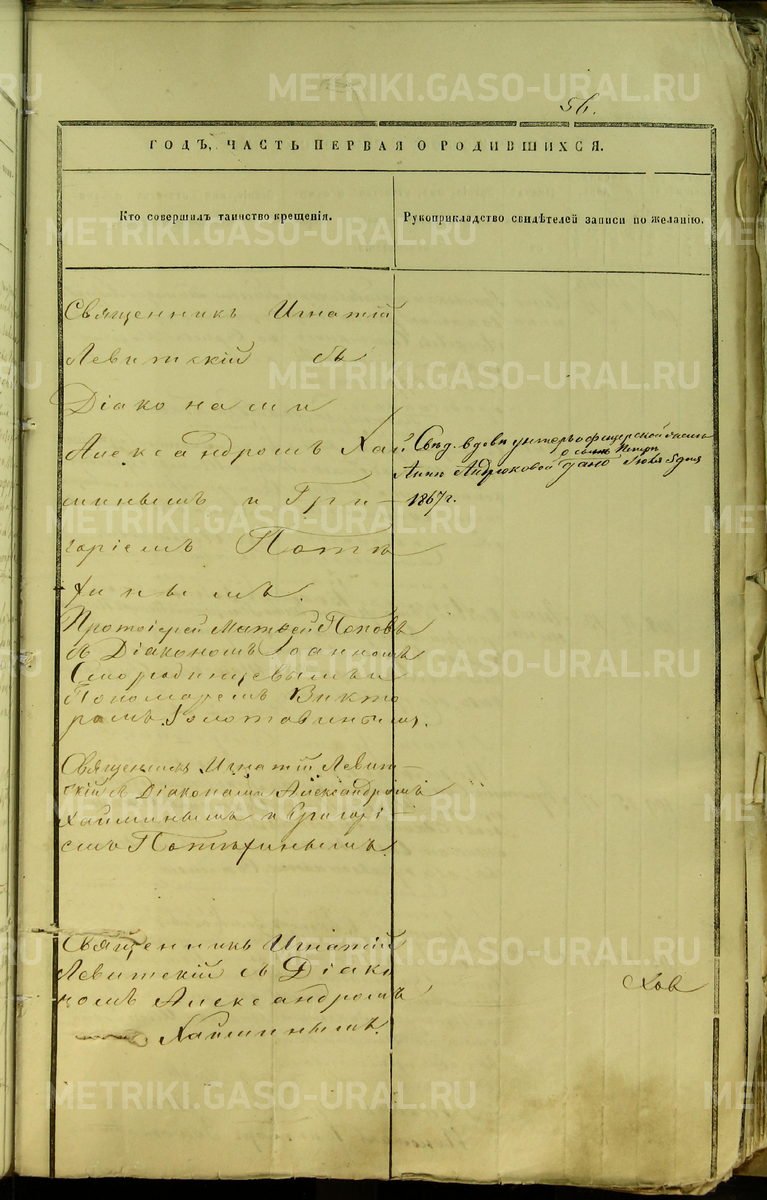 METRIKI.GASO-URAL.RU
56.
ГОДЪ, ЧАСТЬ ПЕРВАЯ О РОДИВШИХСЯ.
Кто совершилъ таинство крещенія.
Рукоприкладство свидѣтелей записи по желанію.
Священникъ Игнатій
Левитскій съ
Діаконами
Александромъ Хай
минымъ и Гри-
горіемъ Потѣ
хинымъ.
2 Свѣд. вдовѣ унтеръ офицерской
о сынѣ Петрѣ
Аннѣ Андрюковой дано Іюля 5 дня
1867 г.
Протоіерей Матѳей Поповъ
съ Діакономъ Іоанномъ
Смородинцевымъ и
Пономаремъ Викто
ромъ Золотавинымъ.
Священникъ Игнатій Левит-
скій съ Діаконами Александромъ
Хайминымъ и Григорі-
емъ Потѣхинымъ.
Священникъ Игнатій
Левитскій съ Діако
номъ Александромъ
Хайминымъ.